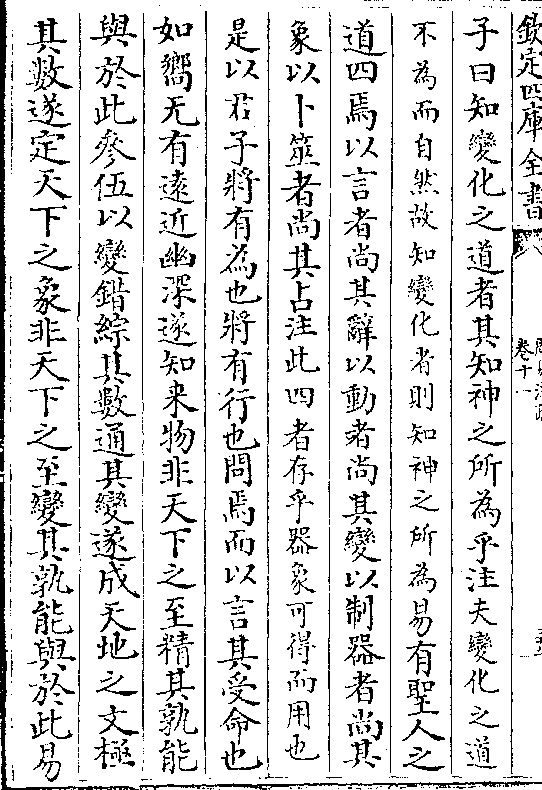 欽定四庫全書
卷十一
子曰知變化之道者其知神之所為乎注夫變化之道
不為而自然故知變化者則知神之所為易有聖人之
道四焉以言者尚其辭以動者尚其變以制器者尚其
象以卜筮者尚其占注此四者存乎器象可得而用也
是以君子將有為也將有行也問焉而以言其受命也
如嚮无有遠近幽深遂知来物非天下之至精其孰能
與於此參伍以變錯綜其數通其變遂成天地之文極
其數遂定天下之象非天下之至變其孰能與於此易